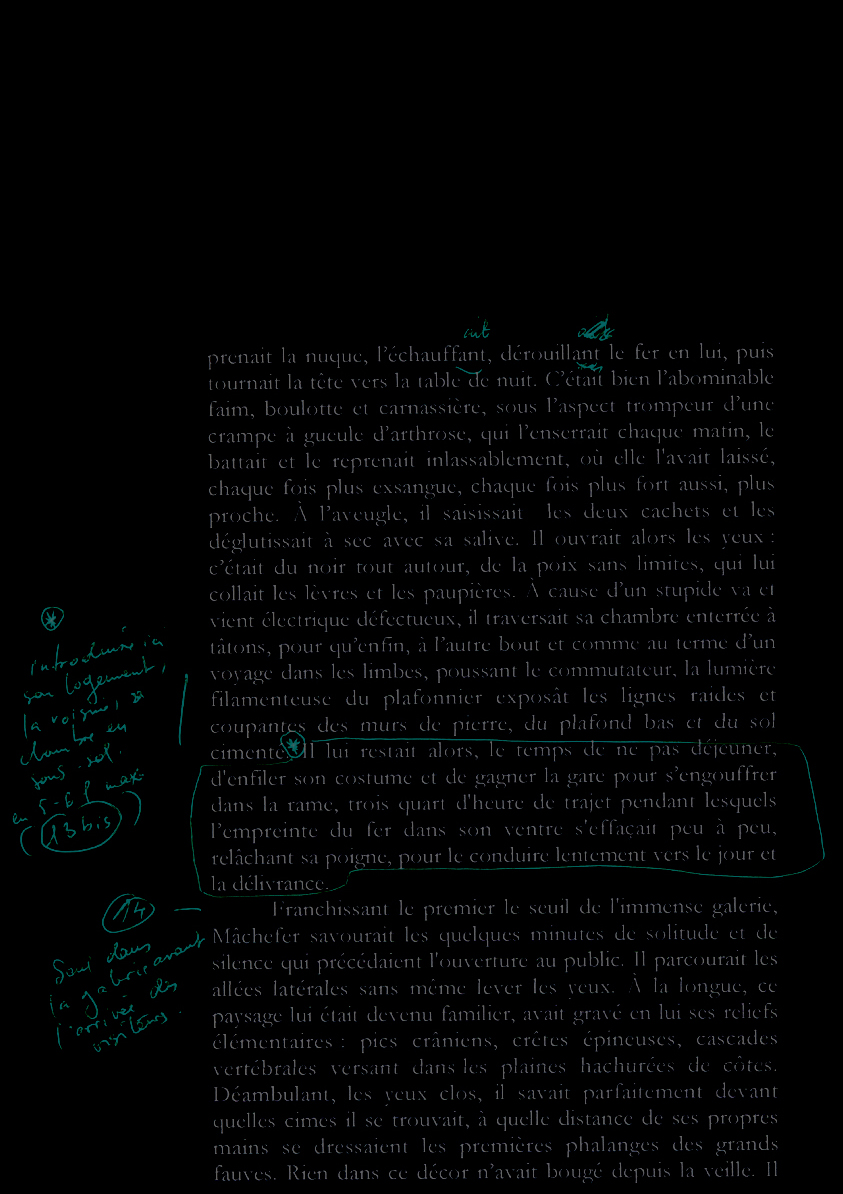 ait
prenait la nuque, l'échauffant, dérouillant le fer en lui, puis
tournait la tête vers la table de nuit. C'était bien l'abominable
faim, boulotte et carnassière, sous l'aspect trompeur d'une
crampe à gueule d'arthrose, qui l'enserrait chaque matin, le
battait et le reprenait inlassablement, où elle l'avait laissé,
chaque fois plus exsangue, chaque fois plus fort aussi, plus
proche. À l'aveugle, il saisissait les deux cachets et les
déglutissait à sec avec sa salive. Il ouvrait alors les yeux :
c'était du noir tout autour, de la poix sans limites, qui lui
collait les lèvres et les paupières. À cause d'un stupide va et
vient électrique défectueux, il traversait sa chambre enterrée à
tâtons, pour qu'enfin, à l'autre bout et comme au terme d'un
voyage dans les limbes, poussant le commutateur, la lumière
filamenteuse du plafonnier exposât les lignes raides et
coupantes des murs de pierre, du plafond bas et du sol
cimenté. Il lui restait alors, le temps de ne pas déjeuner,
d'enfiler son costume et de gagner la gare pour s'engouffrer
dans la rame, trois quart d'heure de trajet pendant lesquels
l'empreinte du fer dans son ventre s'effaçait peu à peu,
relâchant sa poigne, pour le conduire lentement vers le jour et
la délivrance.
introduire ici
son logement,
la voisine, sa
chambre en
sous-sol.
en 5-6 l max.
(13bis)
Franchissant le premier le seuil de l'immense galerie,
Mâchefer savourait les quelques minutes de solitude et de
silence qui précédaient l'ouverture au public. Il parcourait les
allées latérales sans même lever les yeux. À la longue, ce
paysage lui était devenu familier, avait gravé en lui ses reliefs
élémentaires : pics crâniens, crêtes épineuses, cascades
vertébrales versant dans les plaines hachurées de côtes.
Déambulant, les yeux clos, il savait parfaitement devant
quelles cimes il se trouvait, à quelle distance de ses propres
mains se dressaient les premières phalanges des grands
fauves. Rien dans ce décor n'avait bougé depuis la veille. Il
14
Seul dans
la galerie avant
l'arrivée des
visiteurs.